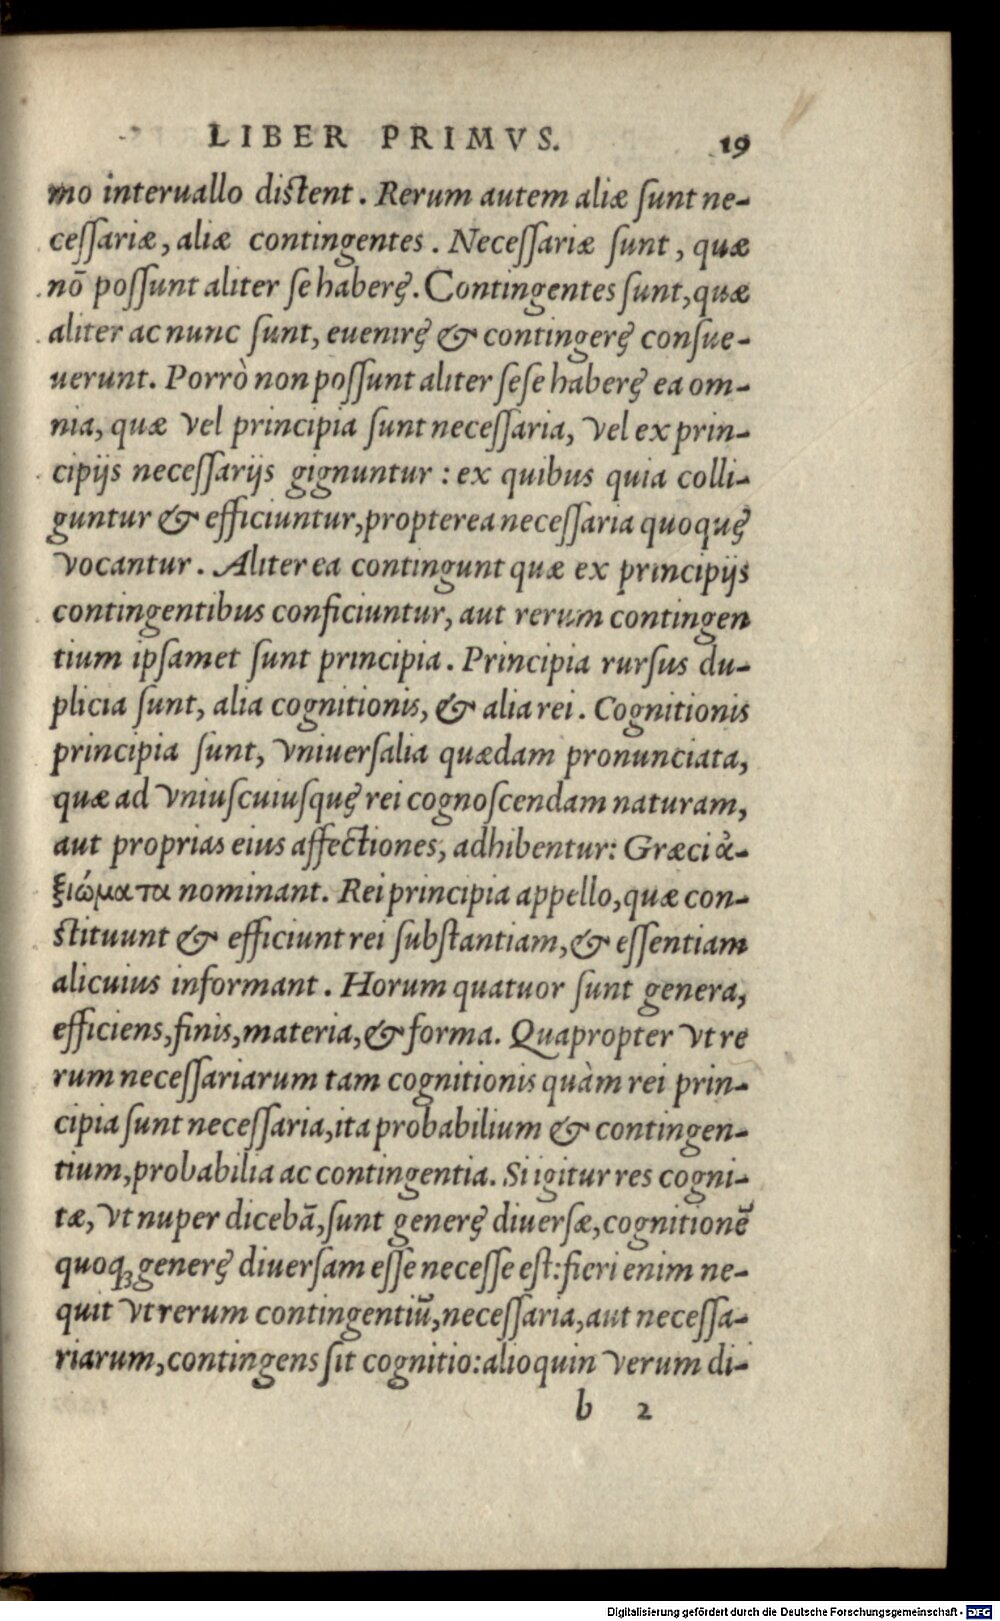 LIBER PRIMVS. 19
mo interuallo distent. Rerum autem aliæ sunt ne-
cessariæ, aliæ contingentes. Necessariæ sunt, quæ
nō possunt aliter se habere. Contingentes sunt, quæ
aliter ac nunc sunt, euenire & contingere consue-
uerunt. Porrò non possunt aliter sese habere ea om-
nia, quæ vel principia sunt necessaria, vel ex prin-
cipijs necessarijs gignuntur: ex quibus quia colli-
guntur & efficiuntur, propterea necessaria quoque
vocantur. Aliter ea contingunt quæ ex principijs
contingentibus conficiuntur, aut rerum contingen
tium ipsamet sunt principia. Principia rursus du-
plicia sunt, alia cognitionis, & alia rei. Cognitionis
principia sunt, vniuersalia quædam pronunciata,
quæ ad vniuscuiusque rei cognoscendam naturam,
aut proprias eius affectiones, adhibentur: Græci ἀ-
ξιώματα nominant. Rei principia appello, quæ con-
stituunt & efficiunt rei substantiam, & essentiam
alicuius informant. Horum quatuor sunt genera,
efficiens, finis, materia, & forma. Quapropter vt re
rum necessariarum tam cognitionis quàm rei prin-
cipia sunt necessaria, ita probabilium & contingen-
tium, probabilia ac contingentia. Si igitur res cogni-
tæ, vt nuper dicebā, sunt genere diuersæ, cognitionē
quoq; genere diuersam esse necesse est: fieri enim ne-
quit vt rerum contingentiū, necessaria, aut necessa-
riarum, contingens sit cognitio: alioquin verum di-
b 2
Digitalisierung gefördert durch die Deutsche Forschungsgemeinschaft - DFG